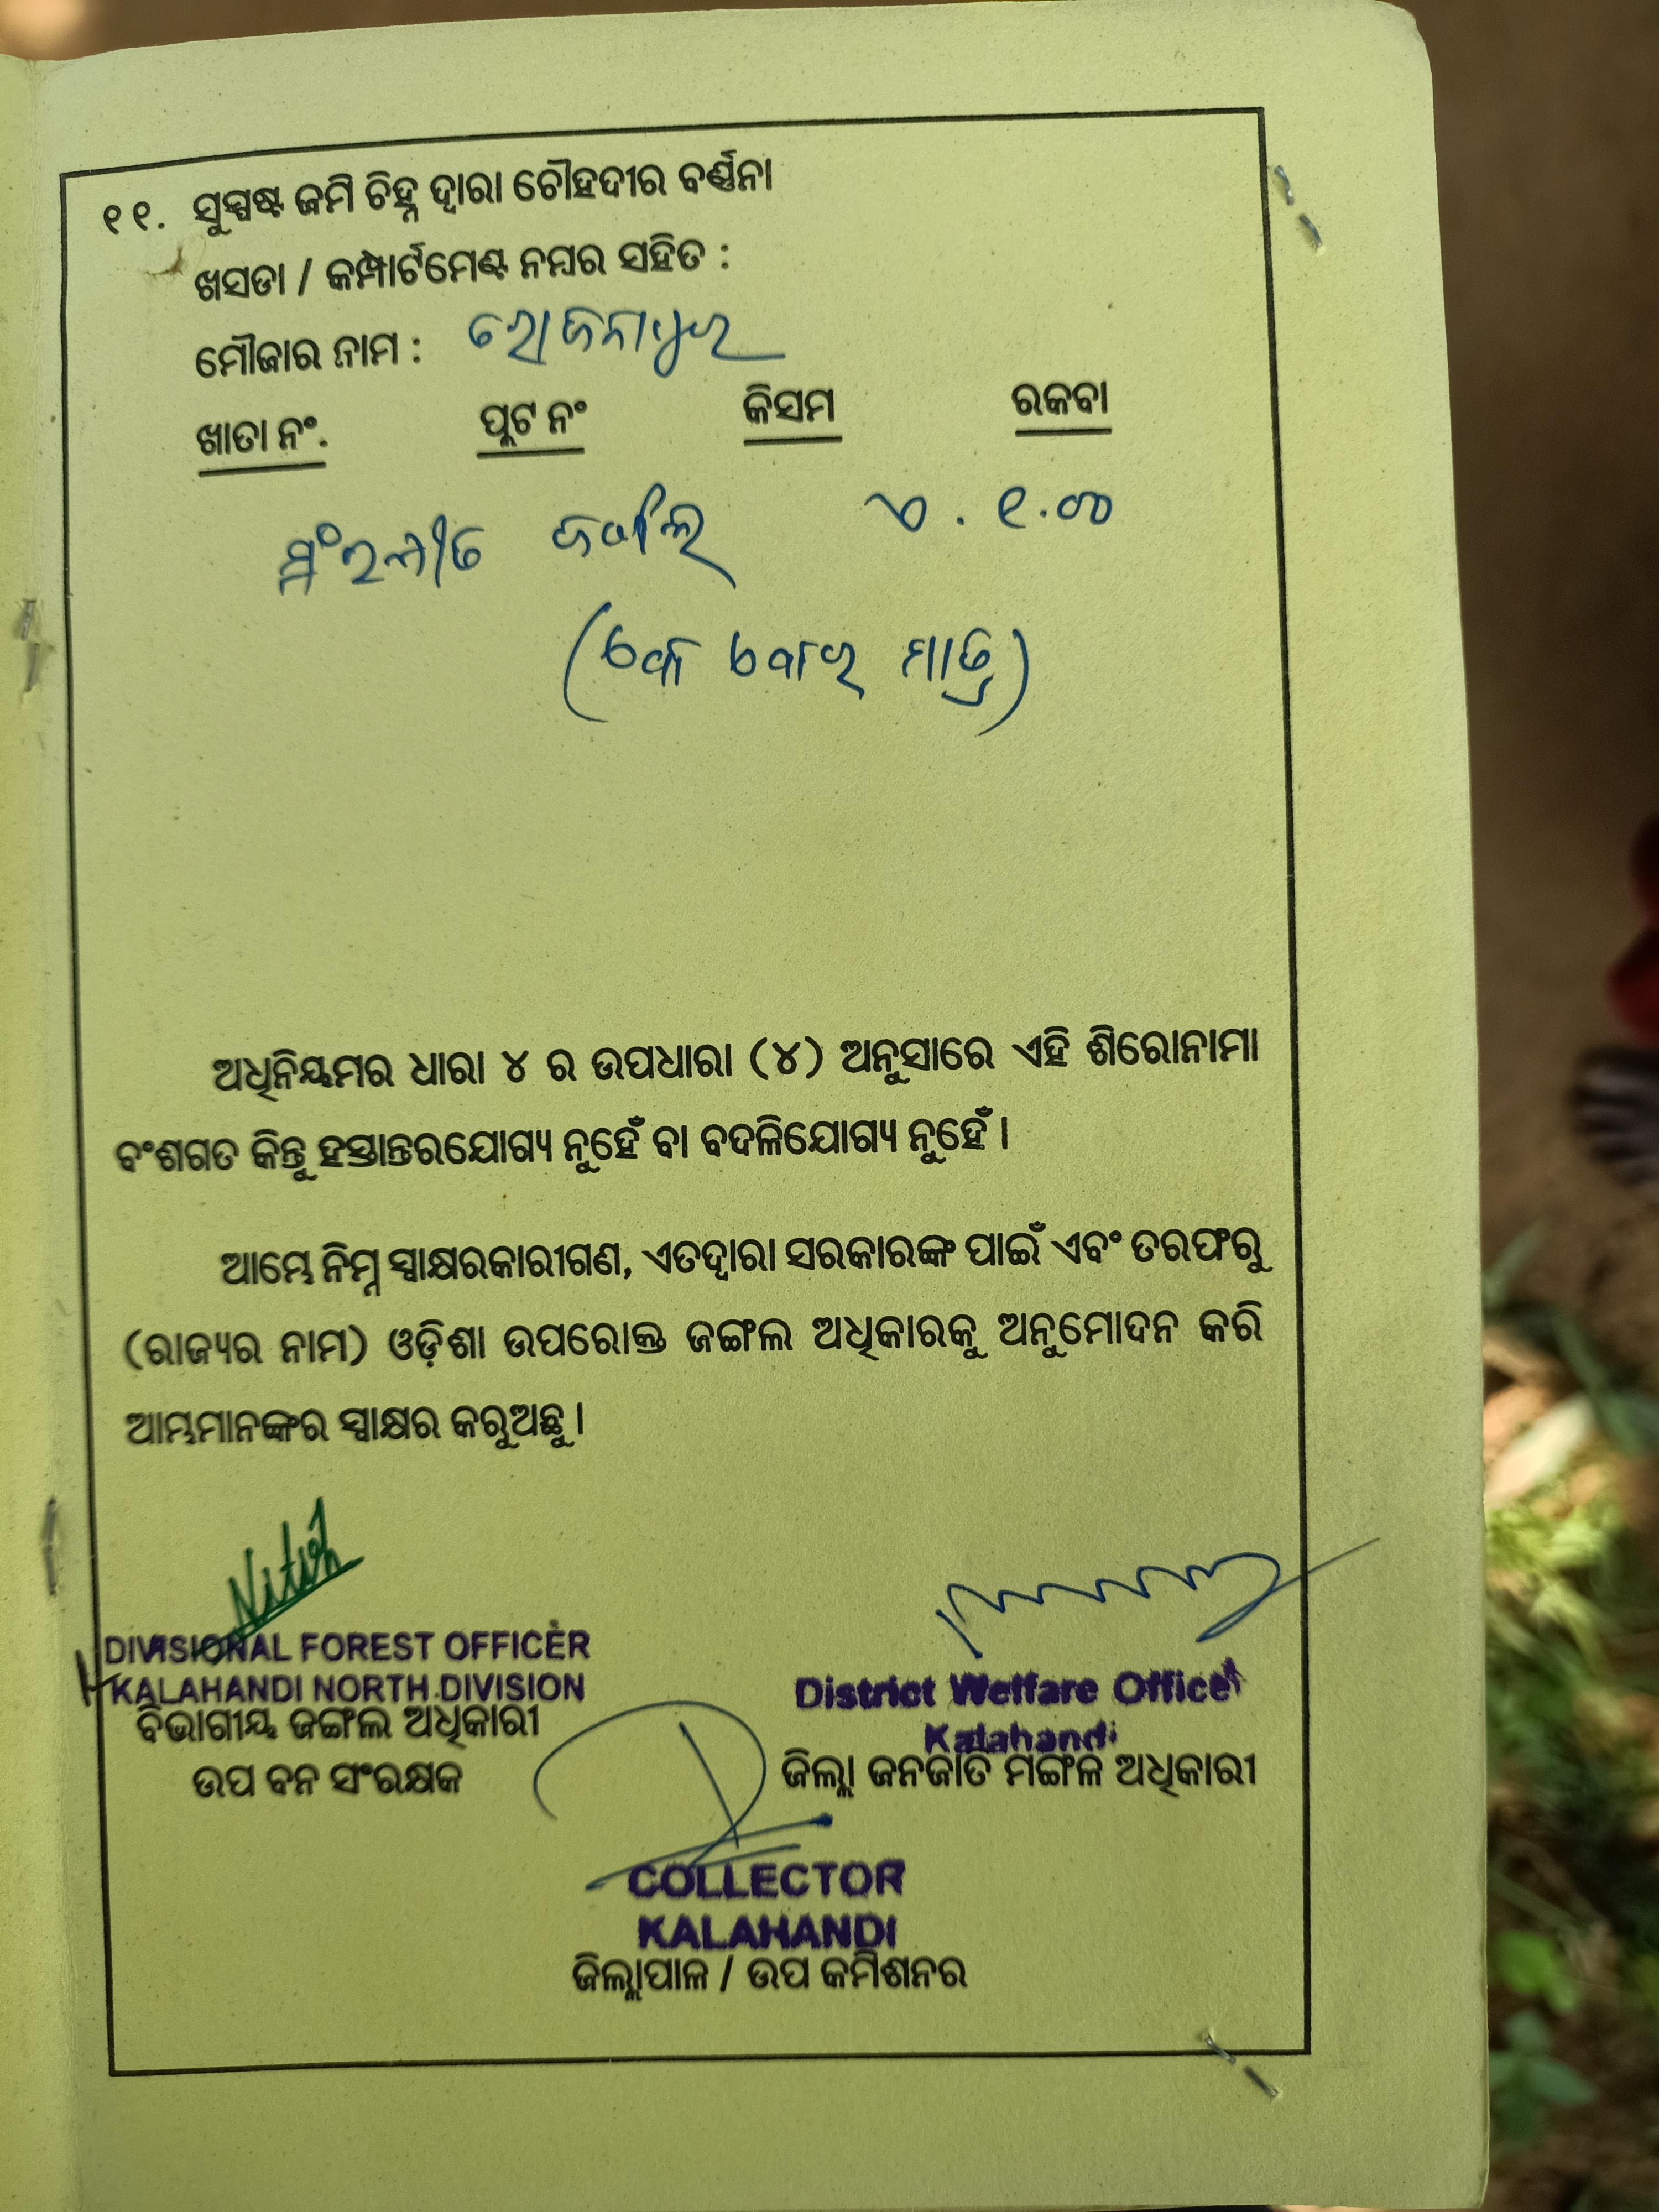 ୧୧. ସୁସ୍ପଷ୍ଟ ଜମି ଚିହ୍ନ ଦ୍ୱାରା ଚୌହଦୀର ବର୍ଣ୍ଣନା
ଖସଡା / କମ୍ପାର୍ଟମେଣ୍ଟ ନମ୍ବର ସହିତ :
ମୌଜାର ନାମ :
ଖାତା ନଂ. ପ୍ଲଟ ନଂ କିସମ ରକବା
ସଂରକ୍ଷୀତ ଜଙ୍ଗଲ ଏ . ୧.୦୦
ମାତ୍ର)
ଅଧିନିୟମର ଧାରା ୪ ର ଉପଧାରା (୪) ଅନୁସାରେ ଏହି ଶିରୋନାମା
ବଂଶଗତ କିନ୍ତୁ ହସ୍ତାନ୍ତରଯୋଗ୍ୟ ନୁହେଁ ବା ବଦଳିଯୋଗ୍ୟ ନୁହେଁ ।
ଆମ୍ଭେ ନିମ୍ନ ସ୍ୱାକ୍ଷରକାରୀଗଣ, ଏତଦ୍ୱାରା ସରକାରଙ୍କ ପାଇଁ ଏବଂ ତରଫରୁ
(ରାଜ୍ୟର ନାମ) ଓଡ଼ିଶା ଉପରୋକ୍ତ ଜଙ୍ଗଲ ଅଧିକାରକୁ ଅନୁମୋଦନ କରି
ଆମ୍ଭମାନଙ୍କର ସ୍ୱାକ୍ଷର କରୁଅଛୁ ।
Nitish
DIVISIONAL FOREST OFFICER
KALAHANDI NORTH DIVISION
ବିଭାଗୀୟ ଜଙ୍ଗଲ ଅଧିକାରୀ
ଉପ ବନ ସଂରକ୍ଷକ
District Welfare Officer
Kalahandi
ଜିଲ୍ଲା ଜନଜାତି ମଙ୍ଗଳ ଅଧିକାରୀ
COLLECTOR
KALAHANDI
ଜିଲ୍ଲାପାଳ / ଉପ କମିଶନର